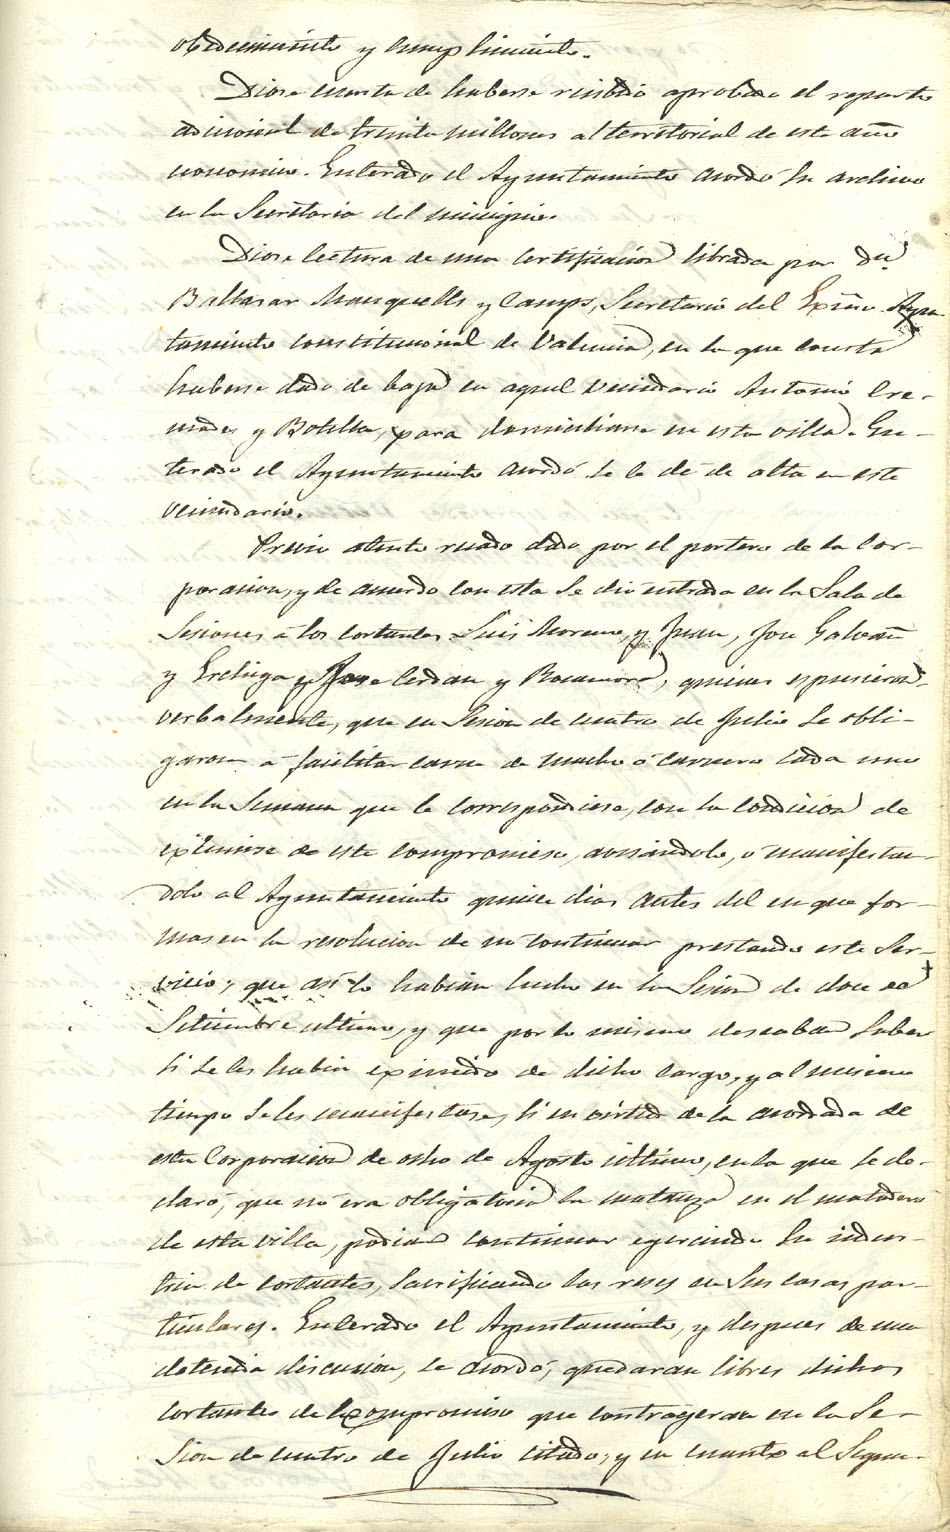 obedecimiento y cumplimiento.
Diose cuenta de haberse recibido aprobado el reparto
adicional de treinta millones al territorial de este año
economico. Enterado el Ayuntamiento acordó su archivo
en la Secretaria del municipio.
Diose lectura de una certificacion librada por Dn
Baltasar Mauquells y Camps, Secretario del Exmo Ayun-
tamiento constitucional de Valencia, en la que consta
haberse dado de baja en aquel vecindario Antonio Cre-
mades y Botella, para domiciliarse en esta villa. En-
terado el Ayuntamiento acordó se le dé de alta en este
vecindario.
Previo atento recado dado por el portero de la Cor-
poracion, y de acuerdo con esta se dió entrada en la Sala de
Sesiones á los cortantes Luis Moreno, y Juan, José Galvañ
y Erchiga y Jose Cerdan y Rocamora, quienes espusieron
verbalmente, que en Sesion de cuatro de Julio se obli-
garon á facilitar carne de macho ó carnero cada uno
en la Semana que le correspondiese, con la condicion de
eximirse de este compromiso, avisándolo, ó manifestan-
dolo al Ayuntamiento quince dias antes del en que for-
masen la resolucion de no continuar prestando este Ser-
vicio, que asi lo habian hecho en la Sesion de doce de
Setiembre ultimo, y que por lo mismo deseaban saber
si se les habia eximido de dicho cargo, y al mismo
tiempo se les manifestase, si en virtud de lo acordado de
esta Corporacion de ocho de Agosto ultimo, en la que se de-
claró, que no era obligatoria la matanza en el matadero
de esta villa, podian continuar egerciendo su indus-
tria de cortantes, sacrificando las reses en sus casas par-
ticulares. Enterado el Ayuntamiento, y despues de una
detenida discusion, se acordó, quedaran libres dichos
cortantes del compromiso que contrageran en la Se-
sion de cuatro de Julio citado, y en cuanto al Segun-